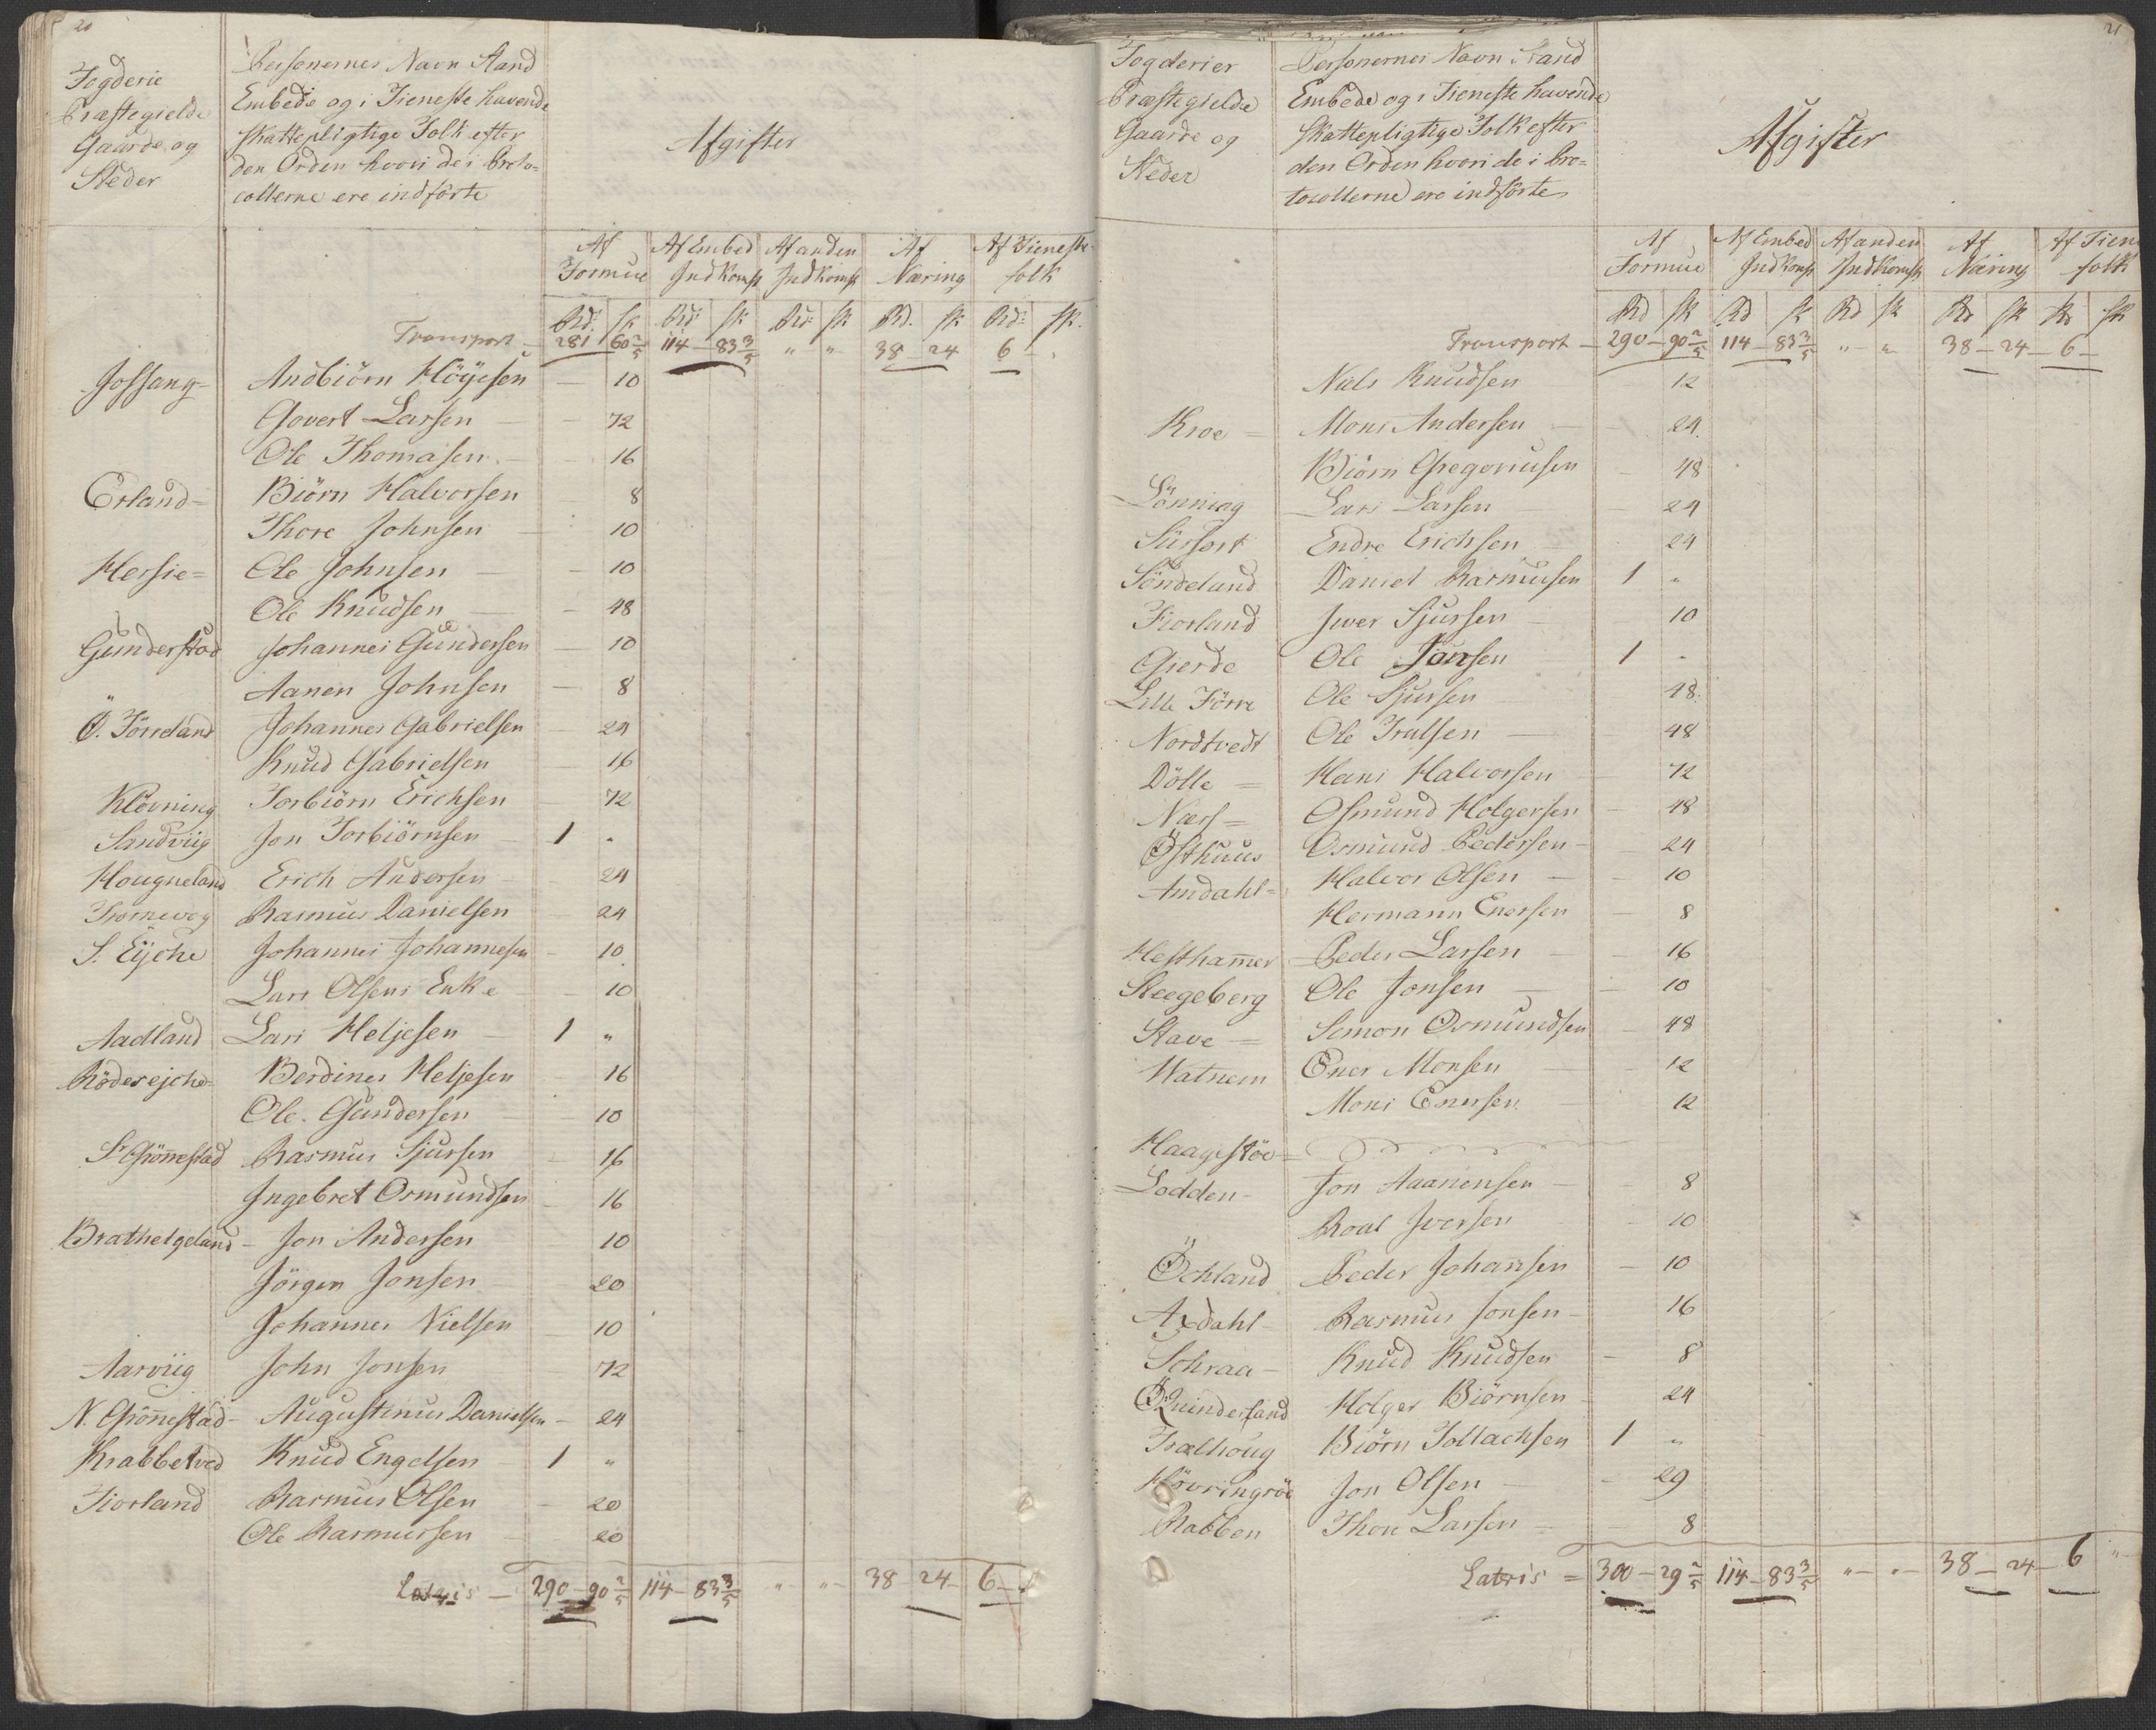 20
Fogderie
Præstegielde
Gaarde og
Steder
Personernes Navn Stand
Embede og i Tieneste havende
skattepligtige Folk efter
den Orden hvori de i Proto-
collerne ere indførte
Afgifter
Af Formue Af Embed Indkomst Af anden Indkomst Af Næring Af Tieneste folk
Rd: sk Rd: sk Rd: sk Rd. sk Rd: sk.
Transport - 281 60 2/5 114 - 83 3/5 " - " 38 - 24 6 - "
Jossang - Andbiörn Höÿesen - 10
Govert Larsen - 72
Ole Thomasen - 16
Erland = Biörn Halvorsen 8
Thore Johnsen - 10
Hersie = Ole Johnsen - 10
Ole Knudsen - 48
Gunderstad Johannes Gundersen - 10
Aanen Johnsen - 8
Ö. Förreland Johannes Gabrielsen 24
Knud Gabrielsen 16
Klövning Torbiörn Erichsen 72
Sandviig Jon Torbiörnsen 1 "
Hougneland Erich Andersen 24
Fromevog Rasmus Danielsen 24
S. Eÿche Johannes Johannesen - 10
Lars Olsens Enke - 10
Aadland Lars Heljesen - 1 "
Rödsejche = Berdines Heljesen 16
Ole Gundersen 10
Sr Grönnestad Rasmus Sjursen 16
Ingebret Osmundsen 16
Brathelgeland - Jon Andersen 10
Jörgen Jonsen 20
Johannes Nielsen 10
Aarviig John Jonsen 72
N. Grönnestad - Augustinus Danielsen - 24
Krabbetved Knud Engelsen - 1 "
Fiorland Rasmus Olsen 20
Ole Rasmussen 20
Lateris - 290 - 90 2/5 114 - 83 3/5 " - " - 38 - 24 - 6 - "
21
Fogderier
Præstegielde
Gaarde og
Steder
Personernes Navn Stand
Embede og i Tieneste havende
skattepligtige Folk efter
den Orden hvori de i Pro-
tocollerne ere indförte
Afgifter
Af Formue Af Embed Indkomst Af anden Indkomst Af Næring Af Tien folk
Rd sk Rd sk Rd sk Rd sk Rd sk
Transport - 290 - 90 2/5 114 - 83 3/5 " - " 38 - 24 - 6 -
Niels Knudsen 12
Kroe = Mons Andersen 24
Biörn Gregoriusen 48
Lönning Lars Larsen 24
Endre Erichsen 24
Söndeland Daniel Rasmusen 1 "
Fiorland Iver Sjursen 10
Gierde Ole Jonsen 1 "
Lille Förre Ole Sjursen 48
Nordtvedt Ole Trulsen 48
Dölle = Hans Halvorsen 72
Næss = Osmund Holgersen 48
Östhuus Osmund Pedersen - 24
Amdahl = Halvor Olsen - 10
Hermann Enersen 8
Hesthamer Peder Larsen - 16
Steegeberg Ole Jonsen - 10
Stave = Simon Osmundsen 48
Watnem Ener Monsen 12
Mons Enersen 12
Haagestöe =
Lodden - Jon Aanensen - 8
Roal Iversen 10
Öchland Peder Johansen - 10
Axdahl - Rasmus Jonsen - 16
Schraa - Knud Knudsen - 8
Ö Quinderland Holger Biörnsen 24
Trælhoug Biörn Tollachsen 1 "
Hövringröe Jon Olsen - 29
Rabben Thore Larsen 8
Lateris = 300 - 29 2/5 114 - 83 3/5 " - " - 38 - 24 - 6 "